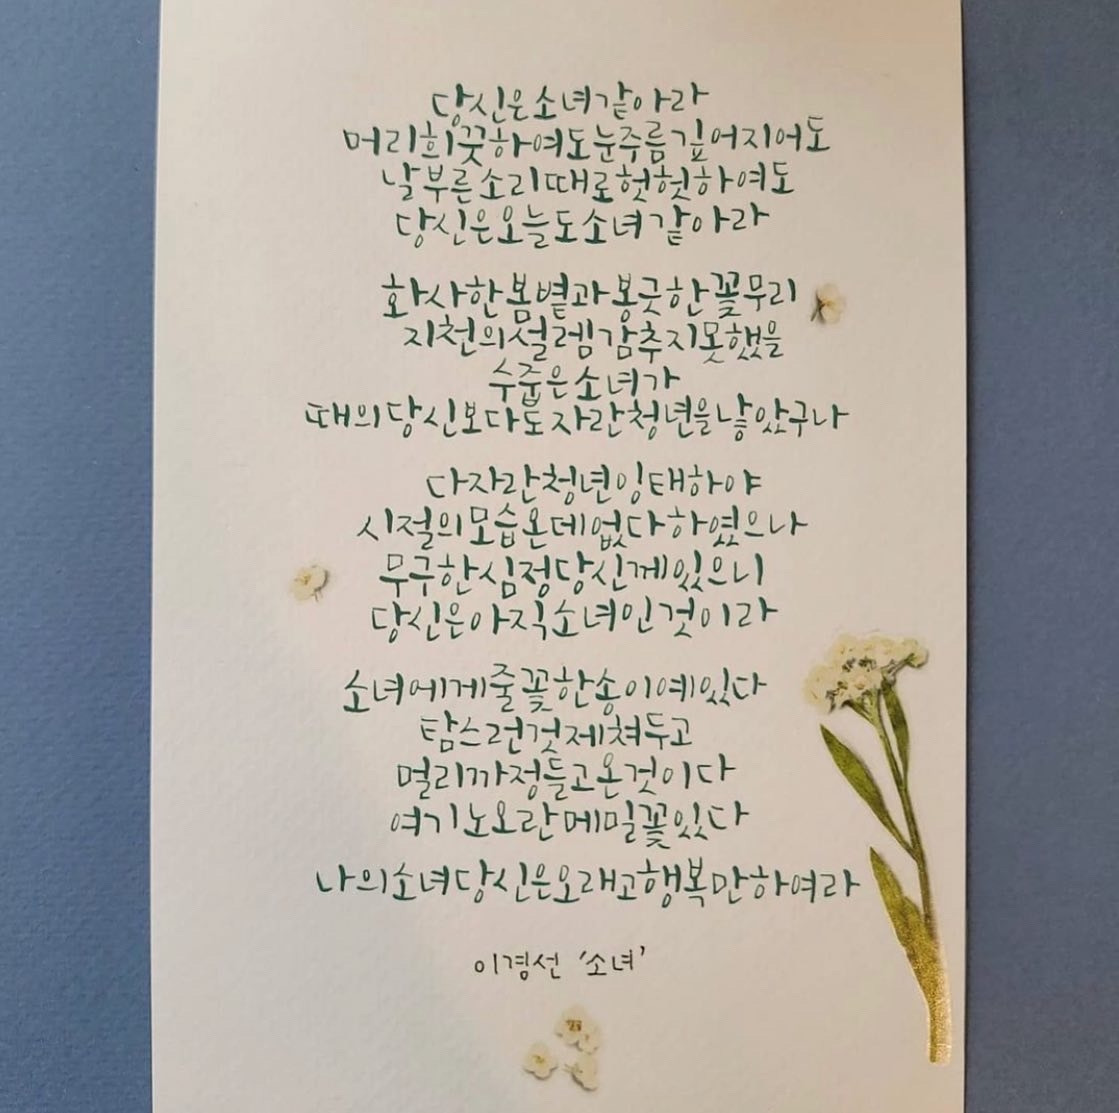 당신은 소녀 같아라
머리 희끗하여도 눈주름 깊어지어도
날 부른 소리 때로 헛헛하여도
당신은 오늘도 소녀 같아라
화사한 봄볕과 봉긋한 꽃무리
지천의 설렘 감추지 못했을
수줍은 소녀가
때의 당신보다도 자란 청년을 낳았구나
다 자란 청년 잉태하야
시절의 모습 온데 없다 하였으나
무구한 심정 당신께 있으니
당신은 아직 소녀인 것이라
소녀에게 줄 꽃 한 송이 예 있다
탐스런 것 제쳐두고
멀리까정 들고 온 것이다
여기 노오란 메밀꽃 있다
나의 소녀 당신은 오래고 행복만 하여라
이경선 '소녀'